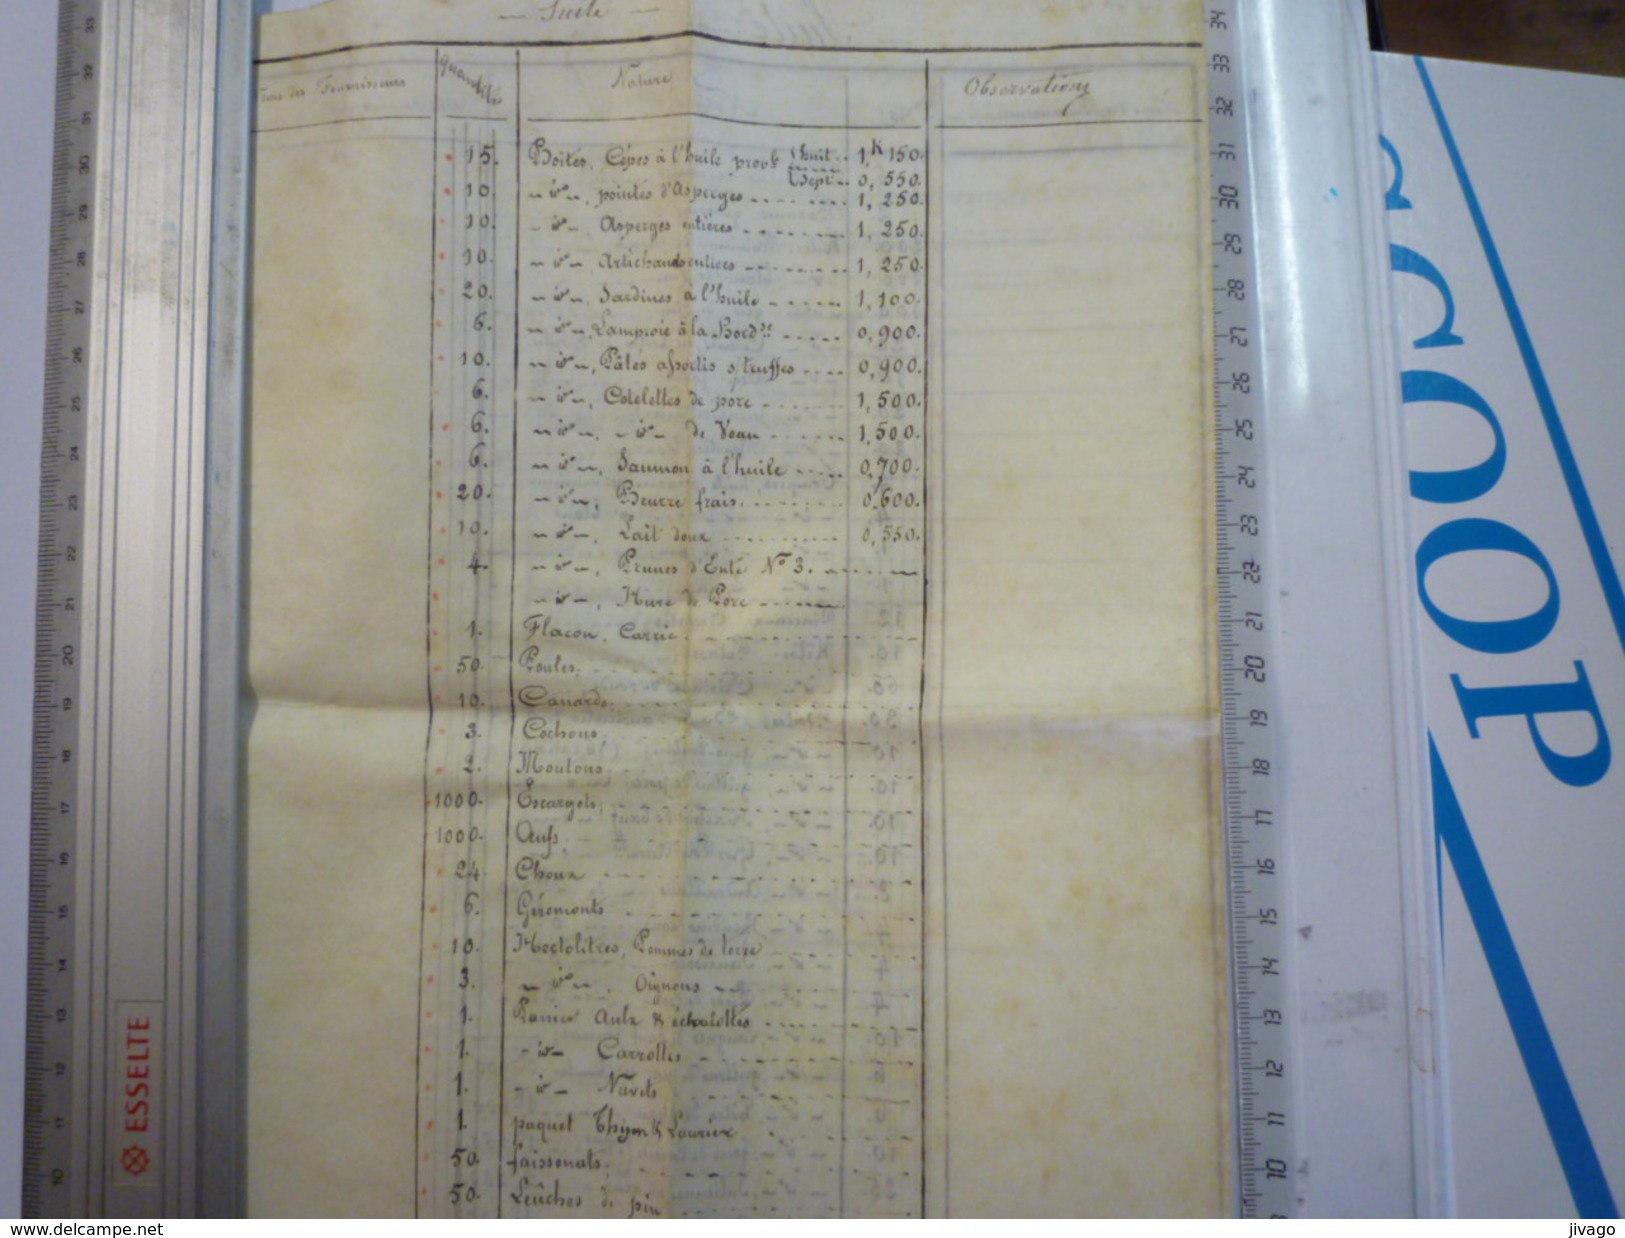 — Suite —
Noms des Fournisseurs Quantités Nature Observations
15. Boites, Cèpes à l'huile prov^t huit.. 1,^K 150.
sept.. 0, 550.
10. -d°-, pointes d'Asperges 1, 250.
10. -d°- Asperges entières 1, 250.
10. -d°- Artichauds entiers 1, 250.
20. -d°-, Sardines à l'huile 1,100.
6. -d°-, Lamproie à la Bord^se 0,900.
10. -d°-, Pâtés assortis s/truffes 0,900.
6. -d°-, Cotelettes de porc 1,500.
6. -d°-, -d°- de Veau 1,500.
6. -d°-, Saumon à l'huile 0,700.
20. -d°-, Beurre frais 0,600.
10. -d°-, Lait doux 0,550.
4. -d°-, Prunes d'Ente N° 3.
-d°-, Hure de Porc
1. Flacon, Carric
50. Poules
10. Canards
3. Cochons
2. Moutons
1000. Escargots
1000. Oeufs
24. Choux
6. Géromonts
10. Hectolitres, Pommes de terre
3. -d°-, Oignons
1. Panier Aulx & échalottes
1. -d°- Carrottes
1. -d°- Navets
1. paquet Thym & Laurier
50. faissonats
50. Leûches de pin
ESSELTE
34
33
32
31
30
29
28
27
26
25
24
23
22
21
20
19
18
17
16
15
14
13
12
11
10
COOP
www.delcampe.net
jivago